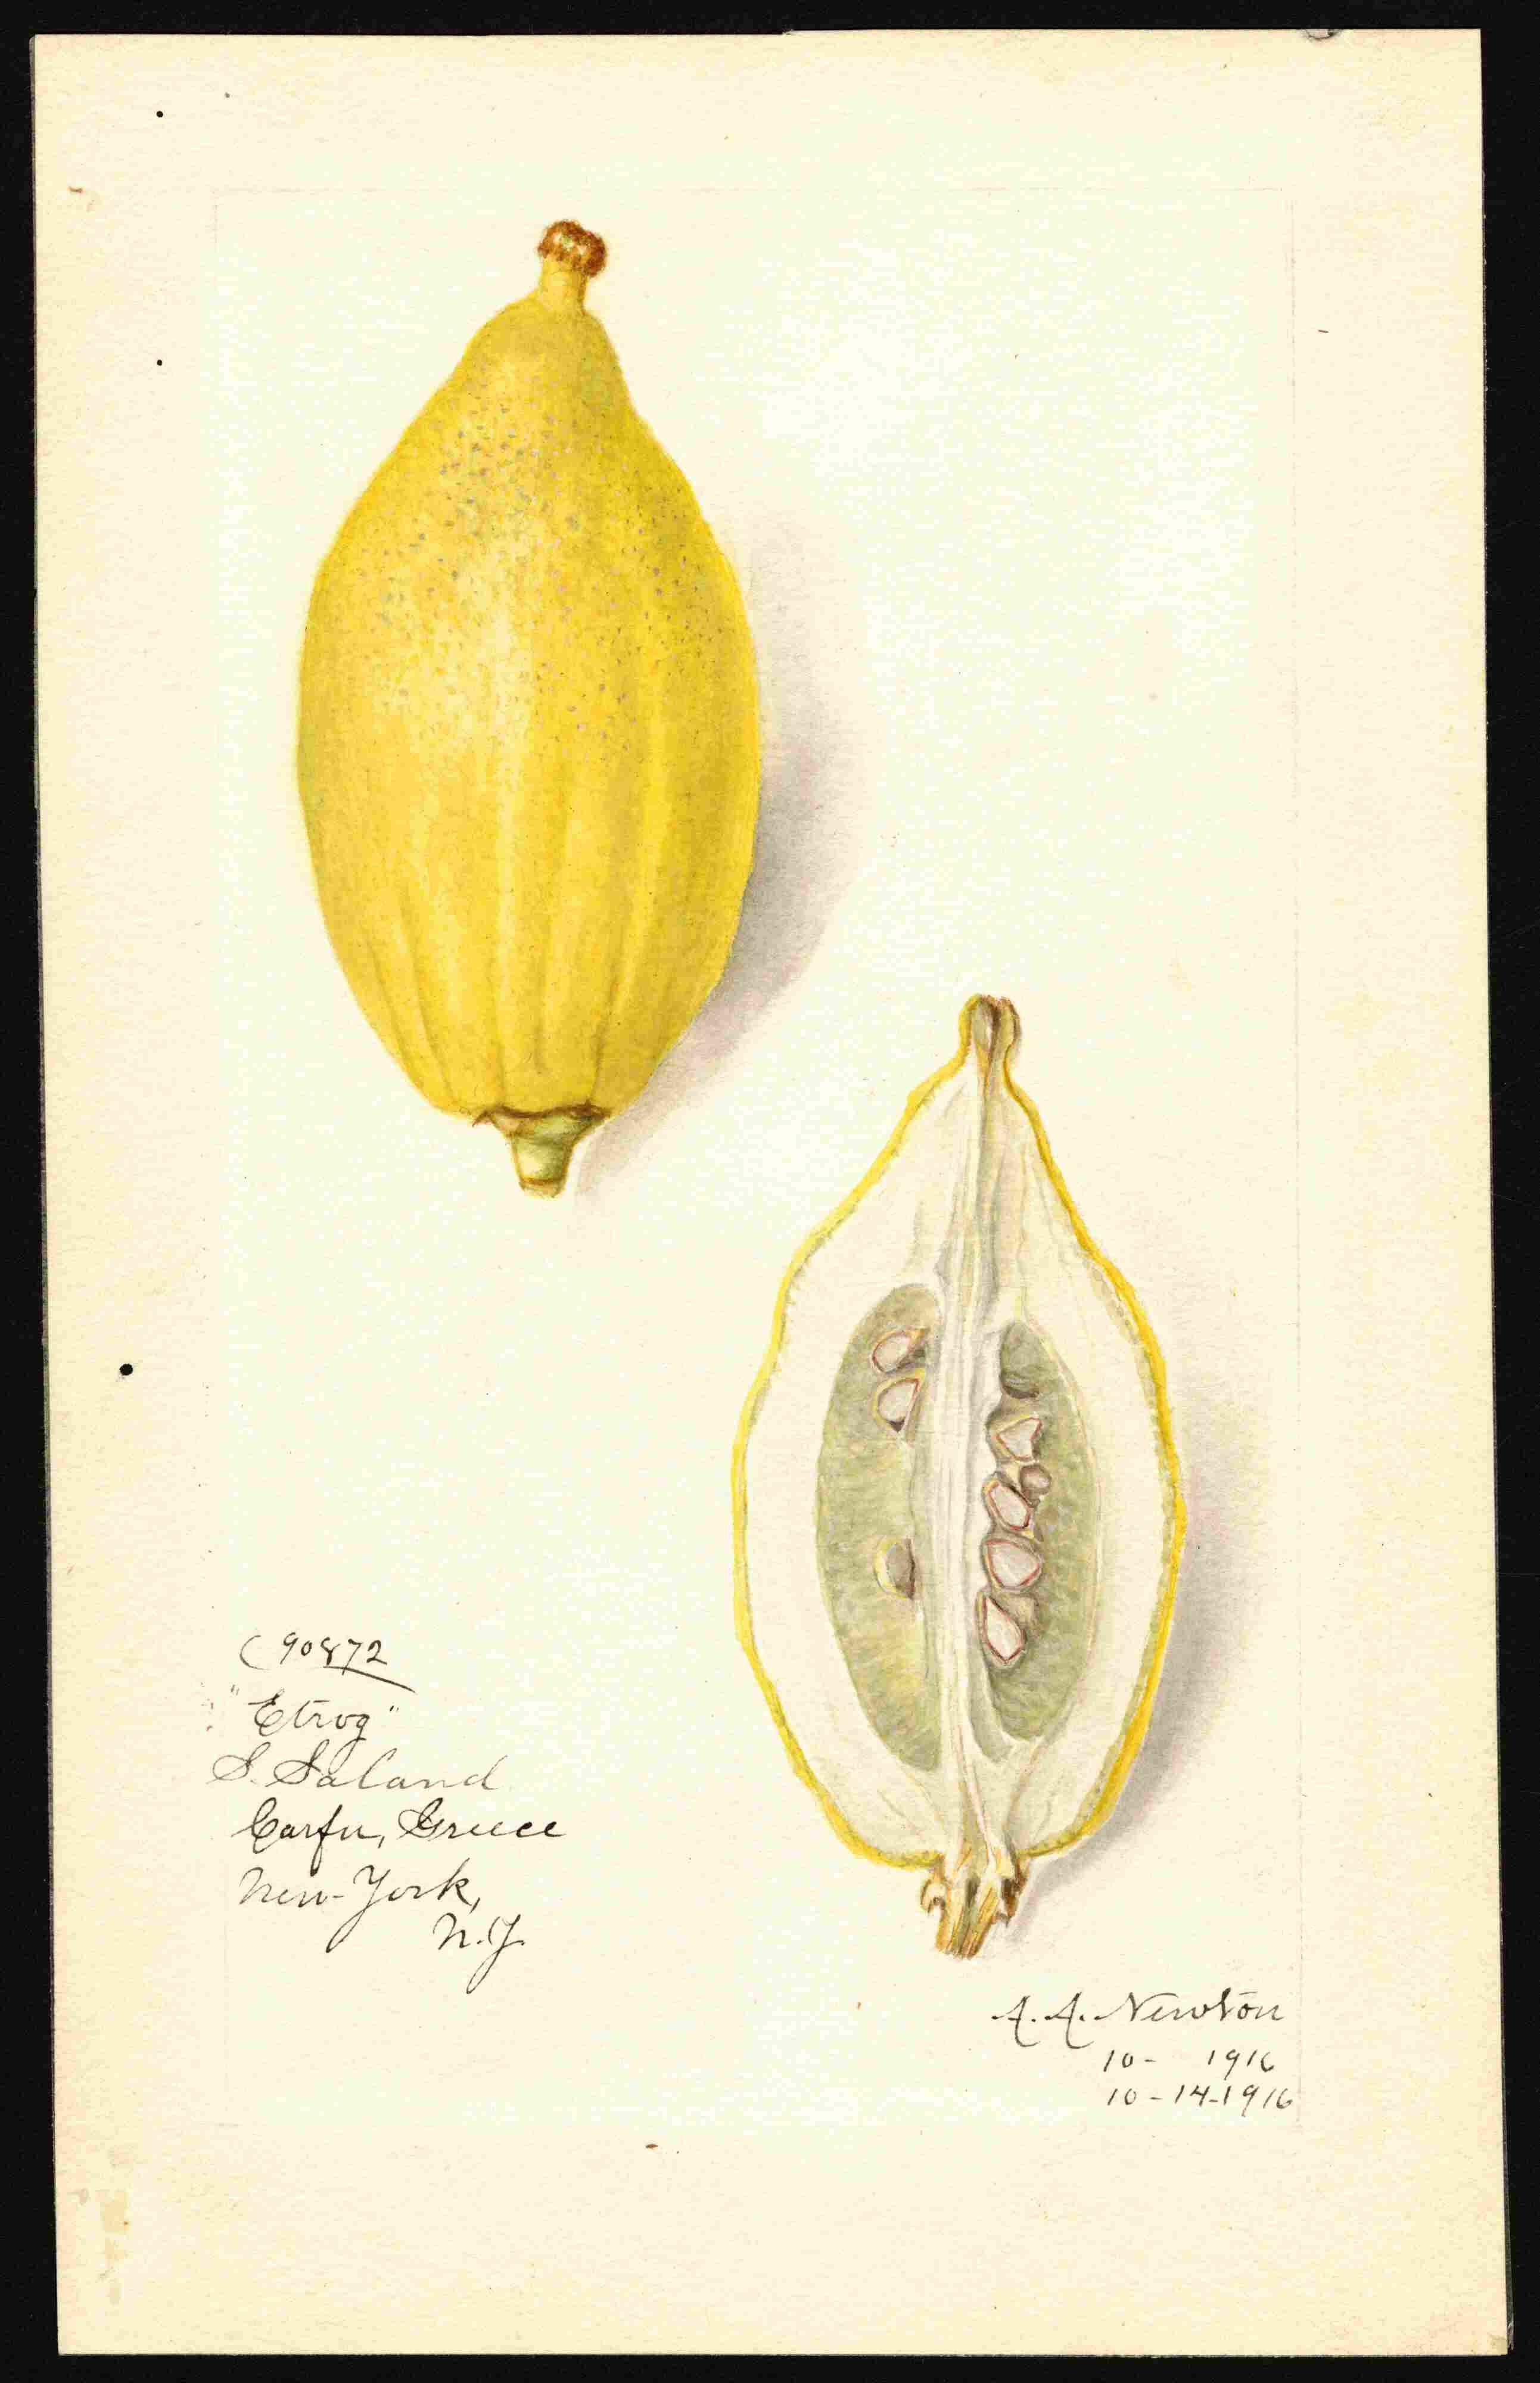 C 90872
"Etrog"
S. Saland
Corfu, Greece
New-York,
N.Y.
A. A. Newton
10- 1916
10-14-1916